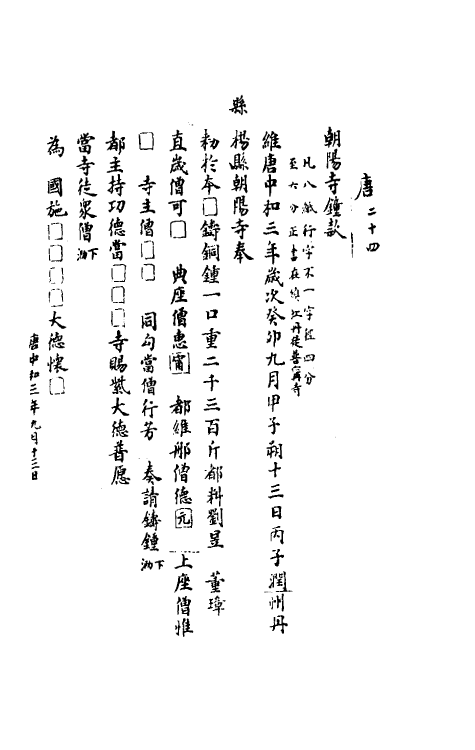 唐 二十四
朝陽寺鐘款
凡八截行字不一字徑四分
至六分正書在鎮江丹徒善
維唐中和三年歲次癸卯九月甲子朔十三日丙子潤州丹
楊縣朝陽寺奉
縣
勑於本□鑄銅鍾一口重二千三百斤都料劉旻 董璋
直歲僧可□ 典座僧惠甯 都維那僧德元 上座僧惟
□ 寺主僧□□ 同勾當僧行芳 奏請鑄鍾 下泐
都主持功德當□□□寺賜紫大德普愿
當寺徒衆僧 下泐
為 國施□□□□大德懷□
唐中和三年九月十三日